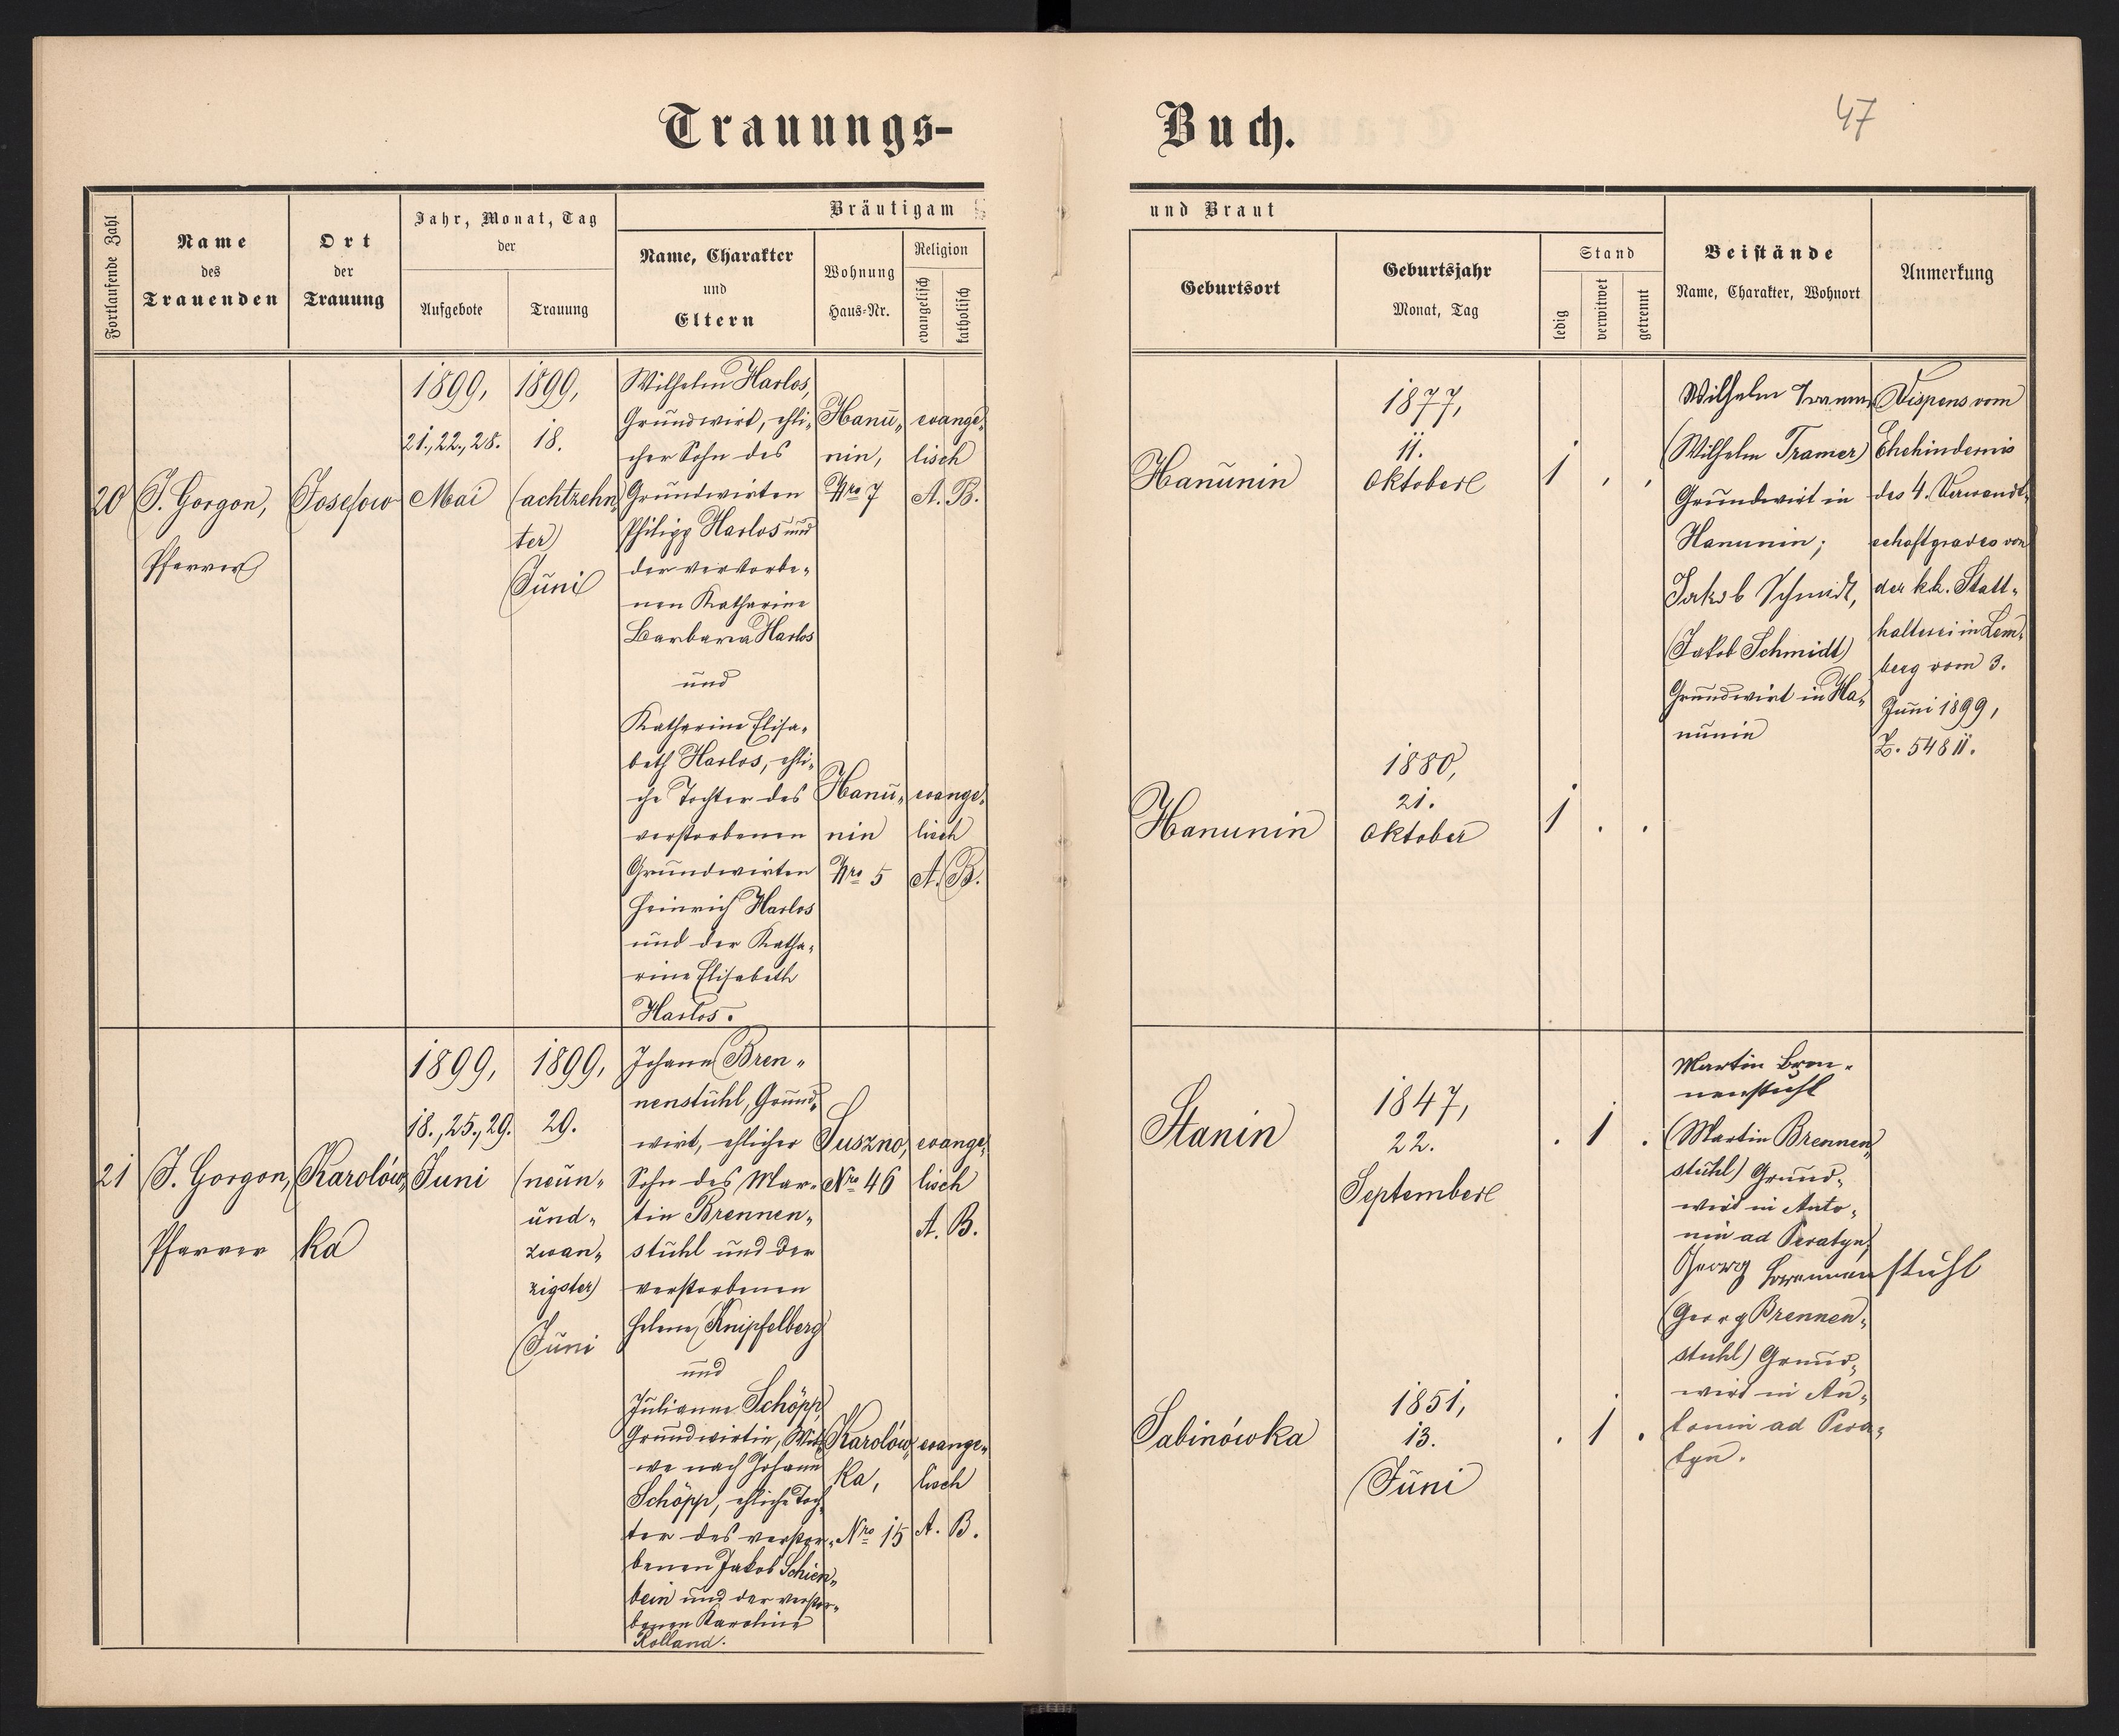 Trauungs-Buch.
47
Fortlaufende Zahl
Name
des
Trauenden
Ort
der
Trauung
Jahr, Monat, Tag
der
Aufgebote
Trauung
Bräutigam
Name, Charakter
und
Eltern
Wohnung
Haus-Nr.
Religion
evangelisch
katholisch
und Braut
Geburtsort
Geburtsjahr
Monat, Tag
Stand
ledig
verwitwet
getrennt
Beistände
Name, Charakter, Wohnort
Anmerkung
20
J. Gorgon,
Pfarrer
Josefow
1899,
21., 22., 28.
Mai
1899,
18.
(achtzehn„
ter)
Juni
Wilhelm Harlos,
Grundwirt, ehli„
cher Sohn des
Grundwirten
Philipp Harlos und
der verstorbe„
nen Katharine
Barbara Harlos
und
Katharine Elisa„
beth Harlos, ehli„
che Tochter des
verstorbenen
Grundwirten
Heinrich Harlos
und der Katha„
rine Elisabeth
Harlos.
Hanu„
nin,
Nro 7
evange„
lisch
A. B.
Hanu„
nin
Nro 5
evange„
lisch
A. B.
Hanunin
1877,
11.
Oktober
1 , ,
Hanunin
1880,
21.
Oktober
1 . .
Wilhelm Tramer
(Wilhelm Tramer)
Grundwirt in
Hanunin;
Jakob Schmidt,
(Jakob Schmidt)
Grundwirt in Ha„
nunin
Dispens vom
Ehehindernis
des 4. Verwandt„
schaftgrades von
der kk. Statt„
halterei in Lem„
berg vom 3.
Juni 1899,
Z. 54811.
21
J. Gorgon,
Pfarrer
Karolów„
ka
1899,
18., 25., 29.
Juni
1899,
29.
(neun„
und„
zwan„
zigster)
Juni
Johann Bren„
nenstuhl, Grund„
wirt, ehlicher
Sohn des Mar„
tin Brennen„
stuhl und der
verstorbenen
Helene Knipfelberg
und
Julianne Schöpp,
Grundwirtin, Wit„
we nach Johann
Schöpp, ehliche Toch„
ter des verstor„
benen Jakob Schien„
bein und der verstor„
benen Karoline
Rolland.
Suszno,
Nro 46
evange„
lisch
A. B.
Karolów„
ka,
Nro 15
evange„
lisch
A. B.
Stanin
1847,
22.
September
. 1 .
Sabinówka
1851,
13.
Juni
. 1 .
Martin Bren„
nenstuhl
(Martin Brennen„
stuhl) Grund„
wirt in Anto„
nin ad Peratyn,
Georg Brennenstuhl
(Georg Brennen„
stuhl) Grund„
wirt in An„
tonin ad Pera„
tyn.